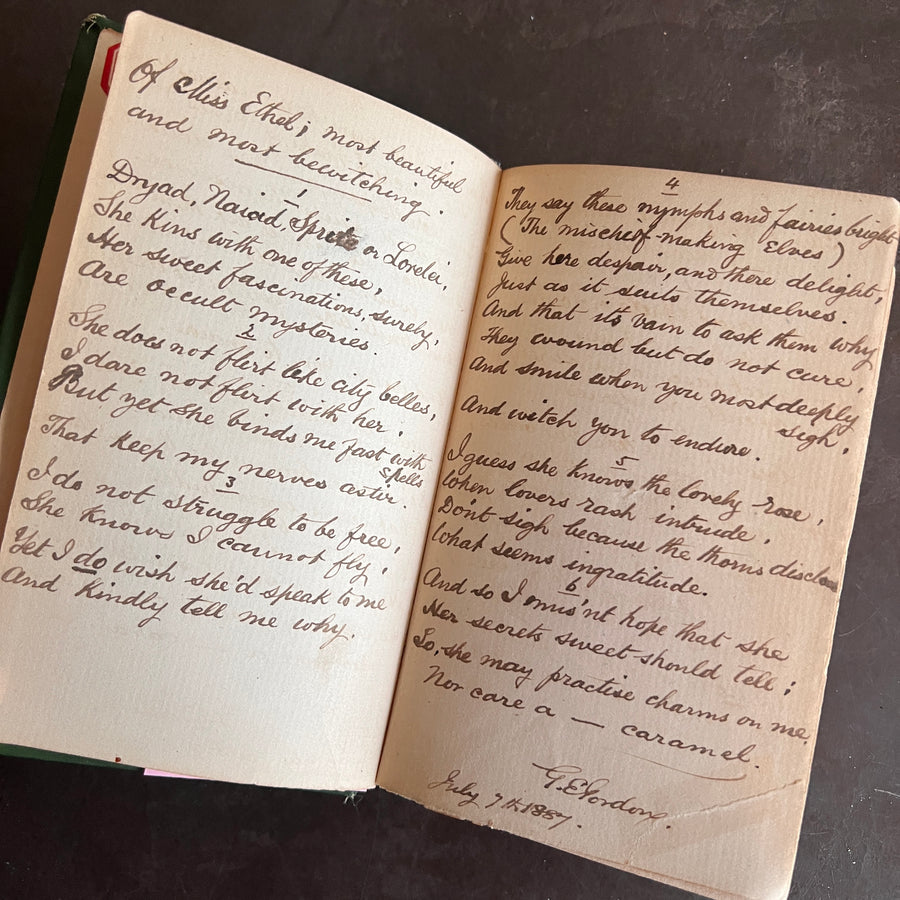 Of Miss Ethel; most beautiful
and most bewitching.
1
Dryad, Naiad Sprite or Lorelei,
She Kins with one of these,
Her sweet fascinations, surely,
Are occult mysteries.
2
She does not flirt like city belles,
I dare not flirt with her;
But yet she binds me fast with
spells
That keep my nerves astir.
3
I do not struggle to be free,
She knows I cannot fly;
Yet I do wish she'd speak to me
And Kindly tell me why.
4
They say these nymphs and fairies bright
(The mischief-making Elves)
Give here despair, and there delight,
Just as it suits themselves.
And that it's vain to ask them why
They wound but do not cure;
And smile when you most deeply
sigh,
And witch you to endure.
5
I guess she knows, the lovely rose,
When lovers rash intrude,
Don't sigh because the thorns disclose
What seems ingratitude.
6
And so I mus'nt hope that she
Her secrets sweet should tell;
So, she may practise charms on me
Nor care a — caramel.
G. E. Gordon.
July 7th 1887.